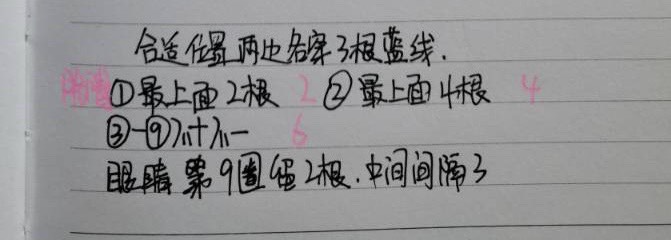 合适位置两边各穿3根蓝线.
①最上面2根 2 ②最上面4根 4
③-⑨ 6
眼睛第9圈 2根.中间间隔3